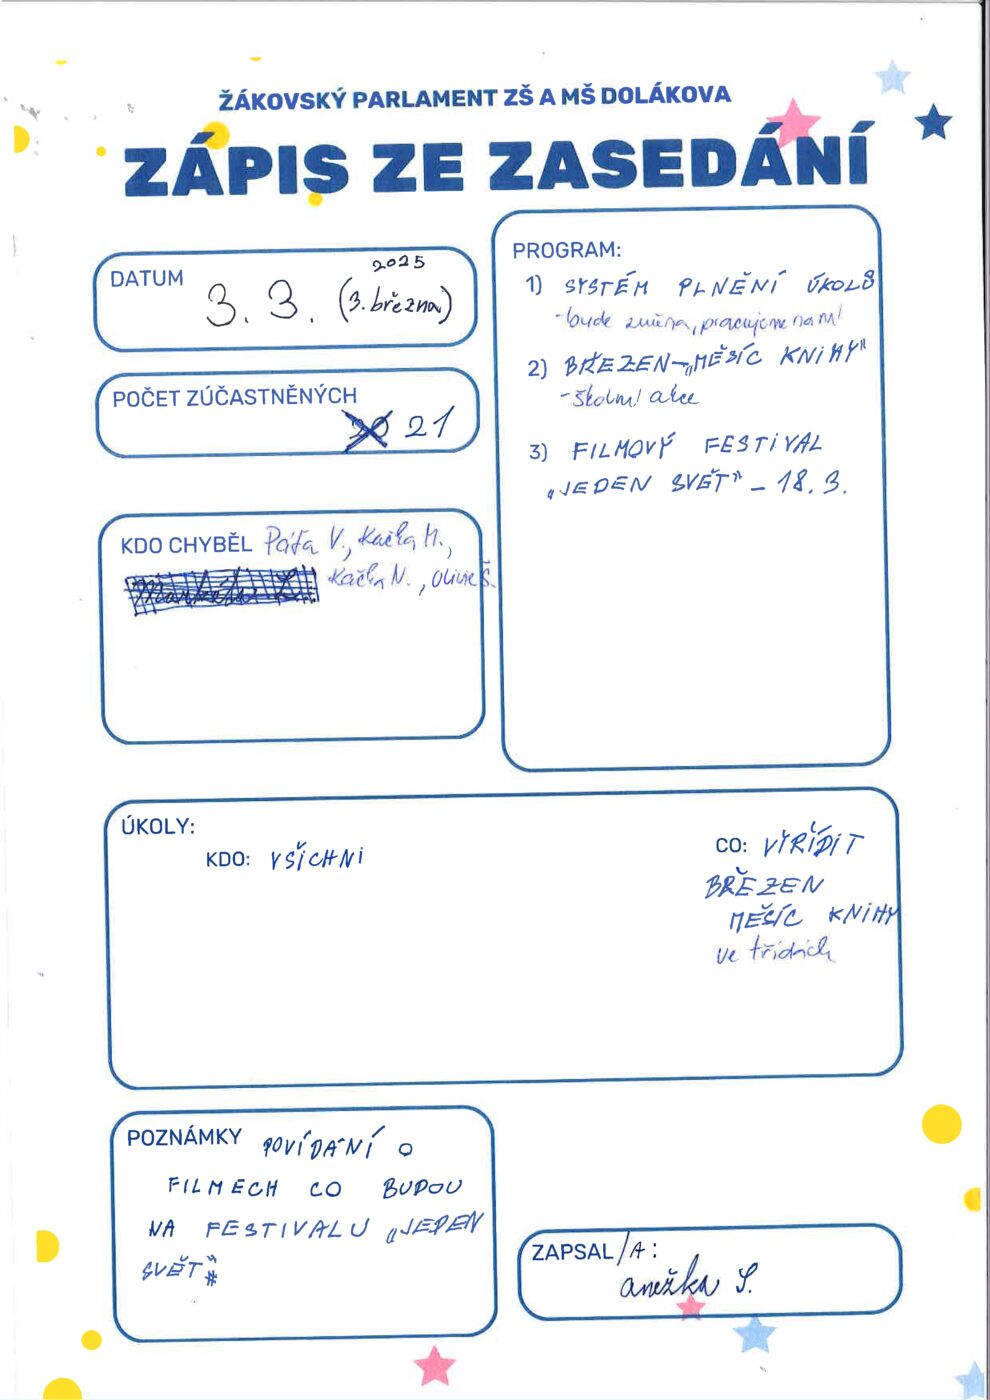 ŽÁKOVSKÝ PARLAMENT ZŠ A MŠ DOLÁKOVA
ZÁPIS ZE ZASEDÁNÍ
DATUM 3. 3. (3. března) 2025
POČET ZÚČASTNĚNÝCH
21
KDO CHYBĚL Páťa V., Kačka M.,
Kačka N., Olivie Š.
PROGRAM:
1) SYSTÉM PLNĚNÍ ÚKOLŮ
-bude změna, pracujeme na ní
2) BŘEZEN-„MĚSÍC KNIHY"
-školní akce
3) FILMOVÝ FESTIVAL
„JEDEN SVĚT" - 18. 3.
ÚKOLY:
KDO: VŠICHNI
CO: VYŘÍDIT
BŘEZEN
MĚSÍC KNIHY
ve třídách
POZNÁMKY POVÍDÁNÍ O
FILMECH CO BUDOU
NA FESTIVALU „JEDEN
SVĚT"
ZAPSAL/A:
Anežka Š.